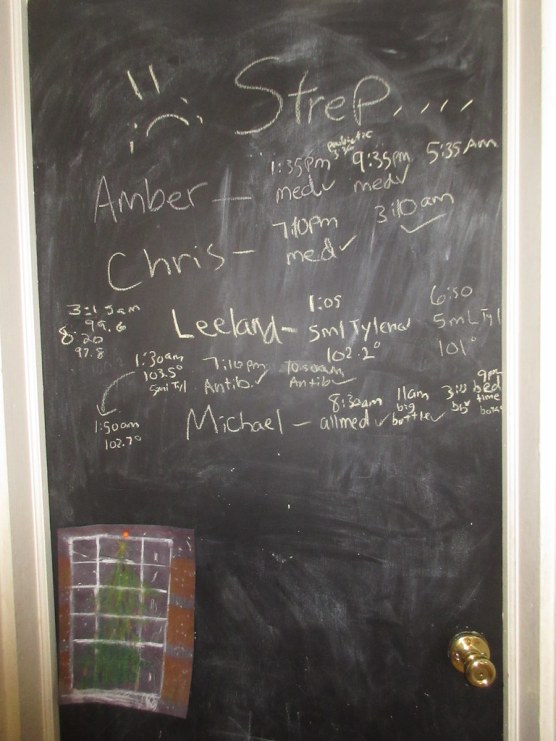 Strep....
1:35pm 9:35pm 5:35 Am
Amber — med✓ med✓
7:10pm 3:10am
Chris — med ✓ ✓
3:15am
99.6
8:20
97.8
1:05 6:50
Leeland — 5ml Tylenol 5mL Tyl
102.2° 101°
1:30am 7:10pm 10:50am
103.5° Antib.✓ Antib✓
5ml Tyl
1:50am
102.7°
8:30am 11am 9pm
Michael — allmed ✓ big bottle✓ bed time